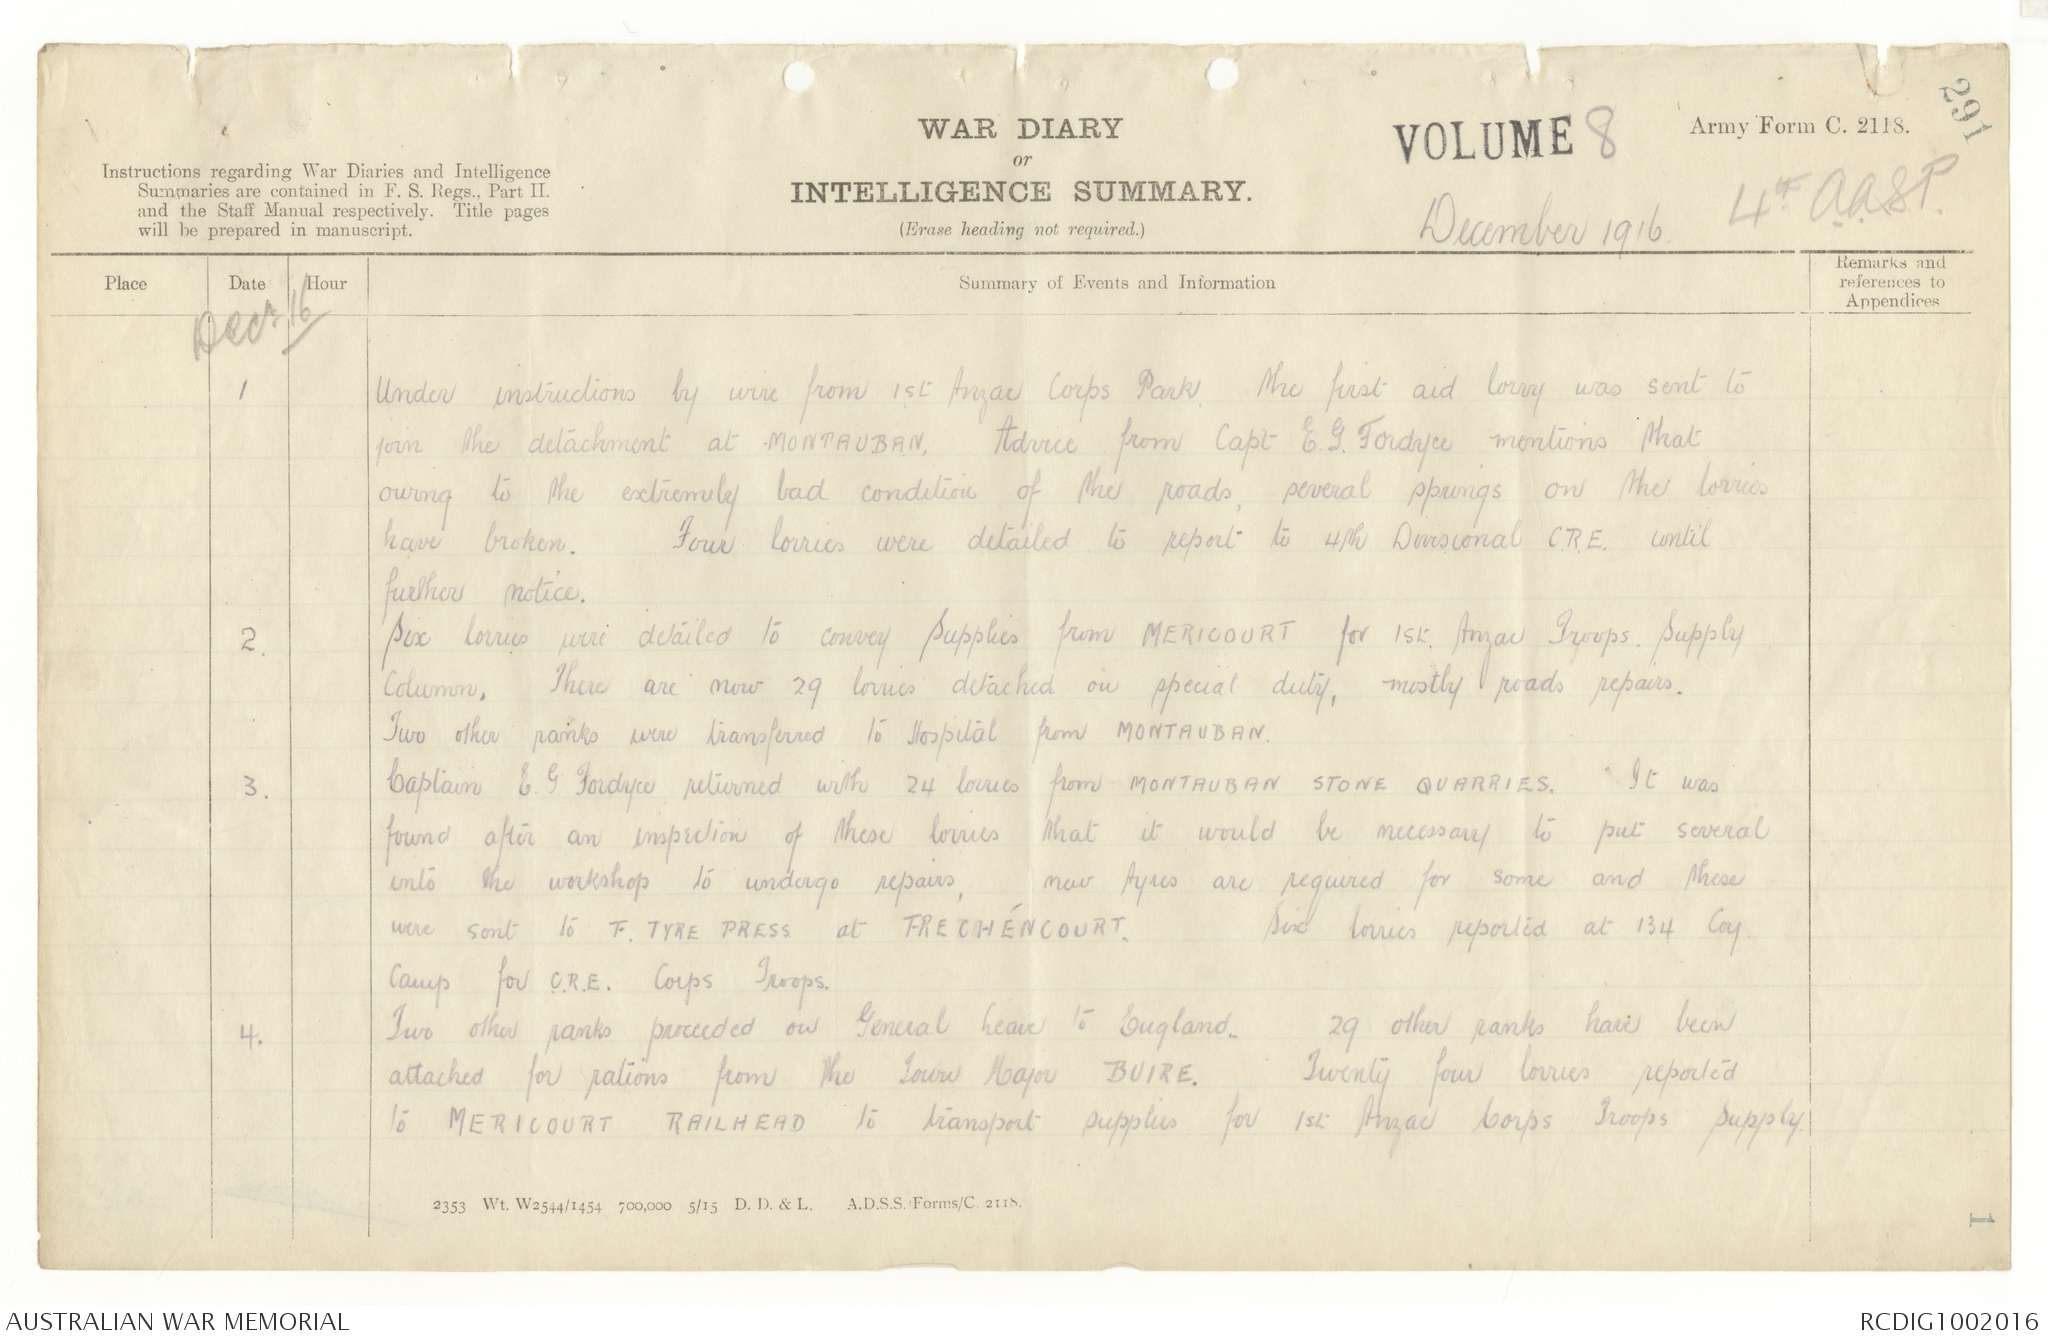 291
WAR DIARY
or
INTELLIGENCE SUMMARY.
(Erase heading not required.)
VOLUME 8
Army Form C. 2118.
December 1916.
4th A.A.S.P.
Instructions regarding War Diaries and Intelligence
Summaries are contained in F. S. Regs., Part II.
and the Staff Manual respectively. Title pages
will be prepared in manuscript.
Place Date Hour Summary of Events and Information Remarks and
references to
Appendices
Decr 16
1 Under instructions by wire from 1st Anzac Corps Park. The first aid lorry was sent to
join the detachment at MONTAUBAN. Advice from Capt E.G. Fordyce mentions that
owing to the extremely bad condition of the roads, several springs on the lorries
have broken. Four lorries were detailed to report to 4th Divisional C.R.E. until
further notice.
2. Six lorries were detailed to convey Supplies from MERICOURT for 1st. Anzac Troops. Supply
Column. There are now 29 lorries detached on special duty, mostly roads repairs.
Two other ranks were transferred to Hospital from MONTAUBAN.
3. Captain E.G Fordyce returned with 24 lorries from MONTAUBAN STONE QUARRIES. It was
found after an inspection of these lorries that it would be necessary to put several
into the workshop to undergo repairs, new tyres are required for some and these
were sent to F. TYRE PRESS at FRECHÉNCOURT. Six lorries reported at 134 Coy.
Camp for C.R.E. Corps Troops.
4. Two other ranks proceeded on General Leave to England. 29 other ranks have been
attached for rations from the Town Major BUIRE. Twenty four lorries reported
to MERICOURT RAILHEAD to transport supplies for 1st Anzac Corps Troops Supply
2353 Wt. W2544/1454 700,000 5/15 D. D. & L. A.D.S.S./Forms/C. 2118.
1
AUSTRALIAN WAR MEMORIAL
RCDIG1002016